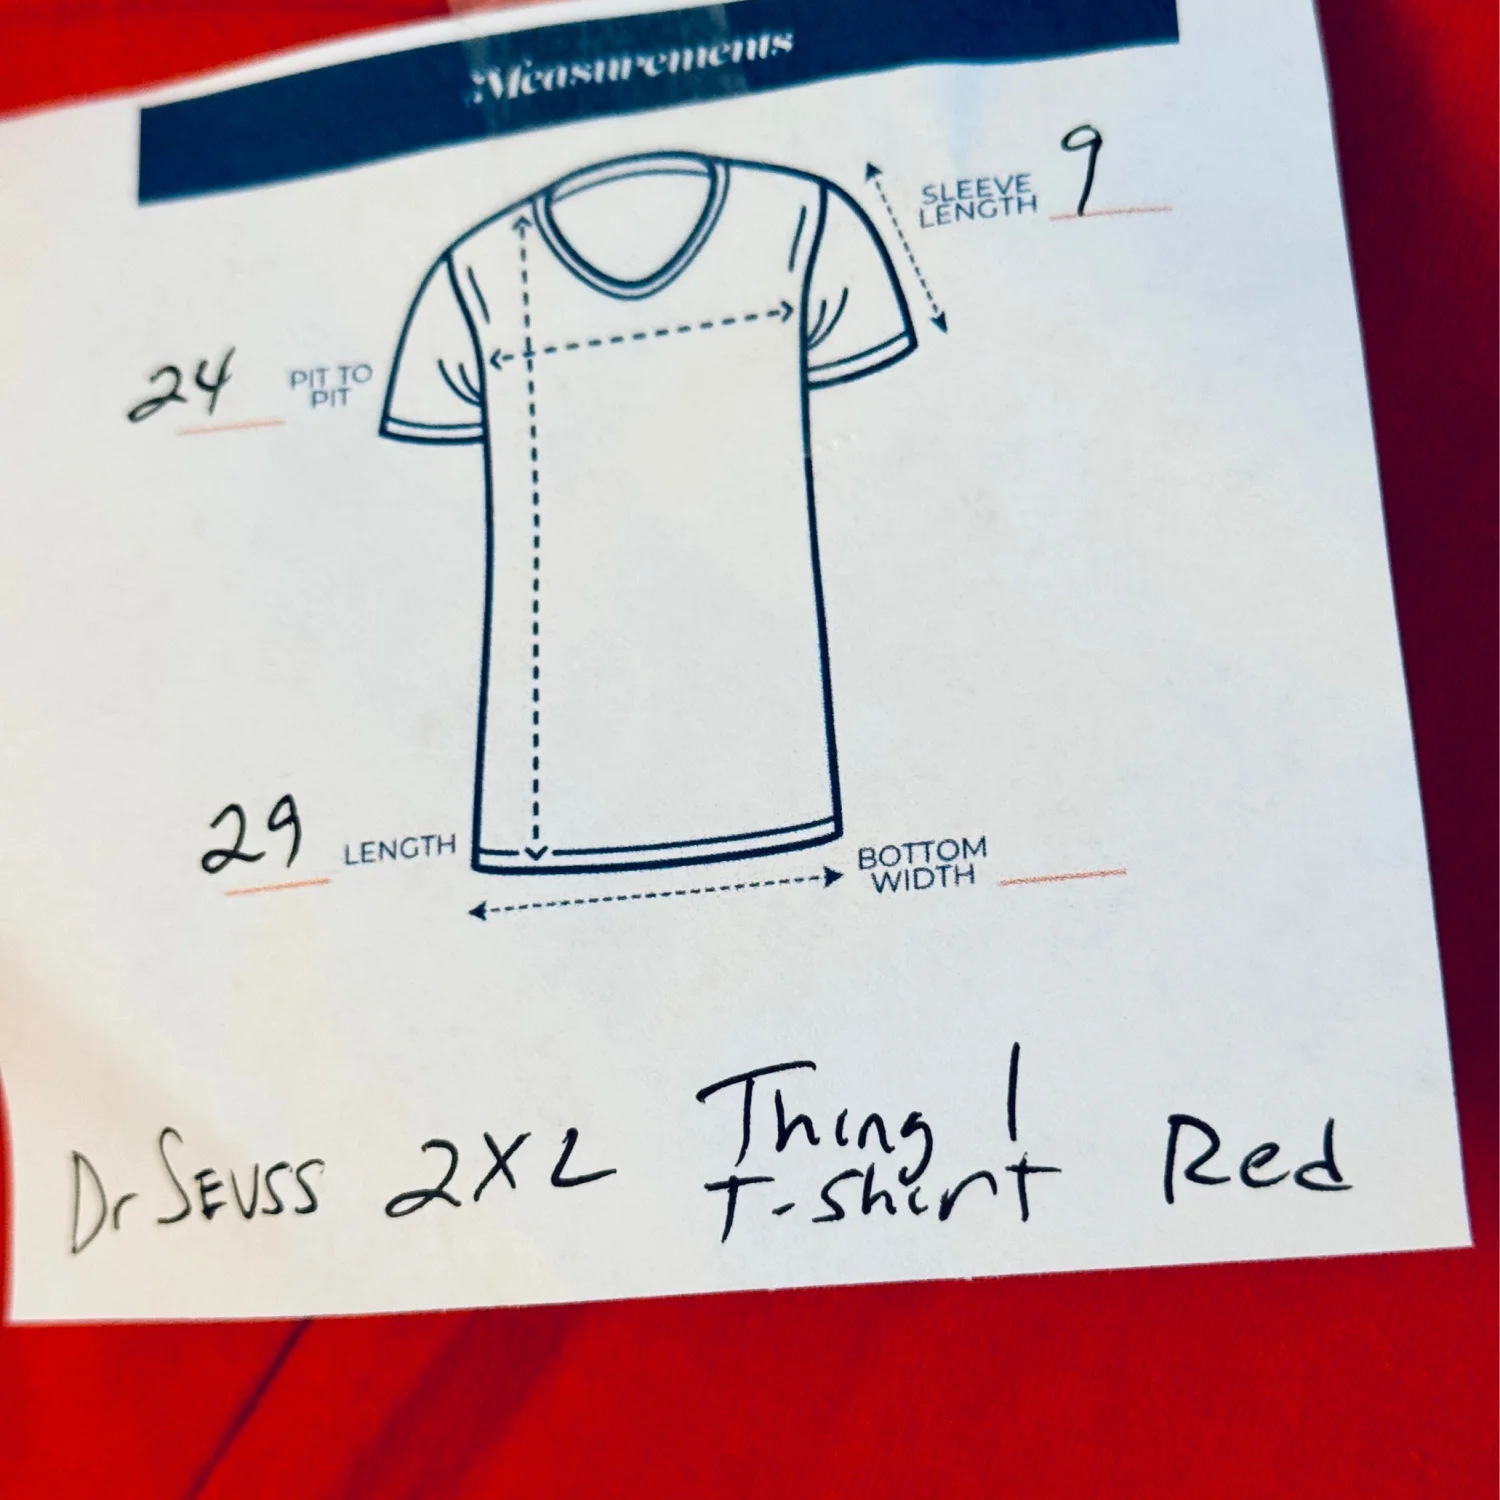 Measurements
SLEEVE
LENGTH 9
24 PIT TO
PIT
29 LENGTH
BOTTOM
WIDTH
Dr SEUSS 2XL Thing 1
T-Shirt Red